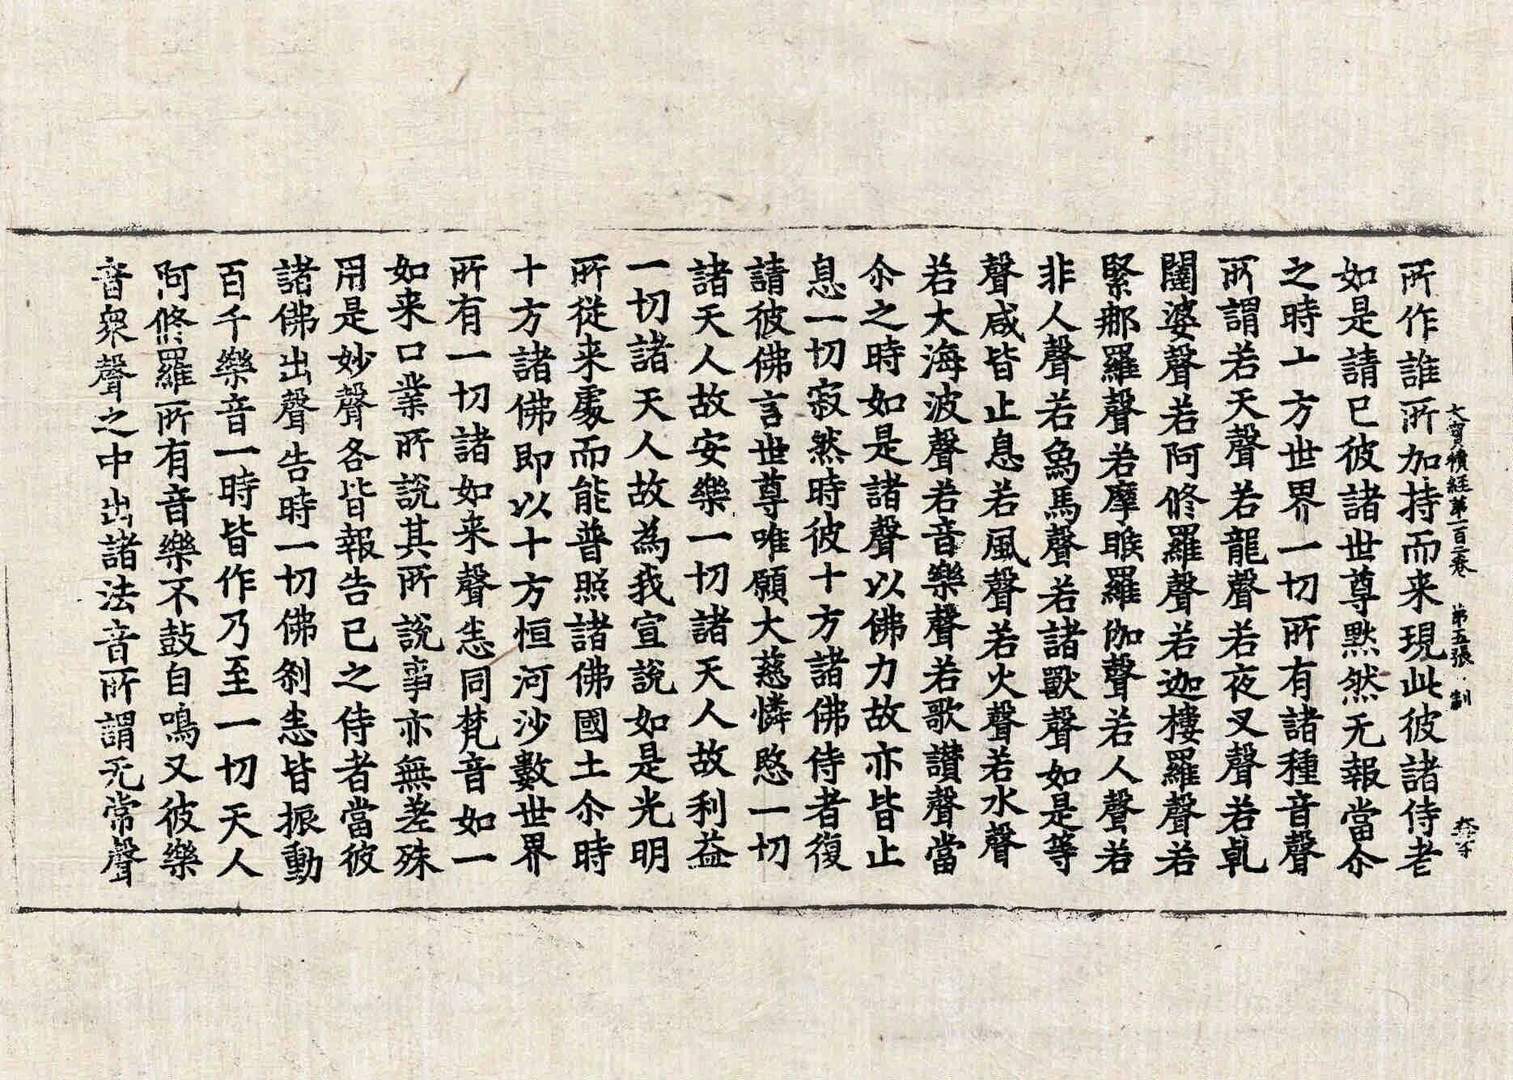 大寶積經第一百三卷 第五張 制
所作誰所加持而来現此彼諸侍者
如是請已彼諸世尊黙然无報當尒
之時上方世界一切所有諸種音聲
所謂若天聲若龍聲若夜叉聲若乹
闥婆聲若阿修羅聲若迦樓羅聲若
緊那羅聲若摩睺羅伽聲若人聲若
非人聲若象馬聲若諸獸聲如是等
聲咸皆止息若風聲若火聲若水聲
若大海波聲若音樂聲若歌讃聲當
尒之時如是諸聲以佛力故亦皆止
息一切寂然時彼十方諸佛侍者復
請彼佛言世尊唯願大慈憐愍一切
諸天人故安樂一切諸天人故利益
一切諸天人故為我宣說如是光明
所從来處而能普照諸佛國土尒時
十方諸佛即以十方恒河沙數世界
所有一切諸如来聲悉同梵音如一
如来口業所說其所說事亦無差殊
用是妙聲各皆報告已之侍者當彼
諸佛出聲告時一切佛刹悉皆振動
百千樂音一時皆作乃至一切天人
阿修羅所有音樂不鼓自鳴又彼樂
音衆聲之中出諸法音所謂无常聲